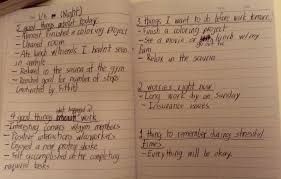 (Night)
5 good things about today:
- Almost finished a coloring project
- Cleaned room
- Ate lunch w/friends I hadn't seen
in awhile
- Relaxed in the sauna at the gym
- Reached goal for number of steps
(counted by Fitbit)
4 good things about work
- Interesting convos w/gym members
- Positive interactions w/coworkers
- Enjoyed a new protein shake
- Felt accomplished after completing
required tasks
3 things I want to do before work tomorrow:
- Finish a coloring project
- See a movie, or lunch w/my
mom
- Relax in the sauna
2 worries right now
- Long work day on Sunday
- Insurance issues
1 thing to remember during stressful
times
- Everything will be okay.